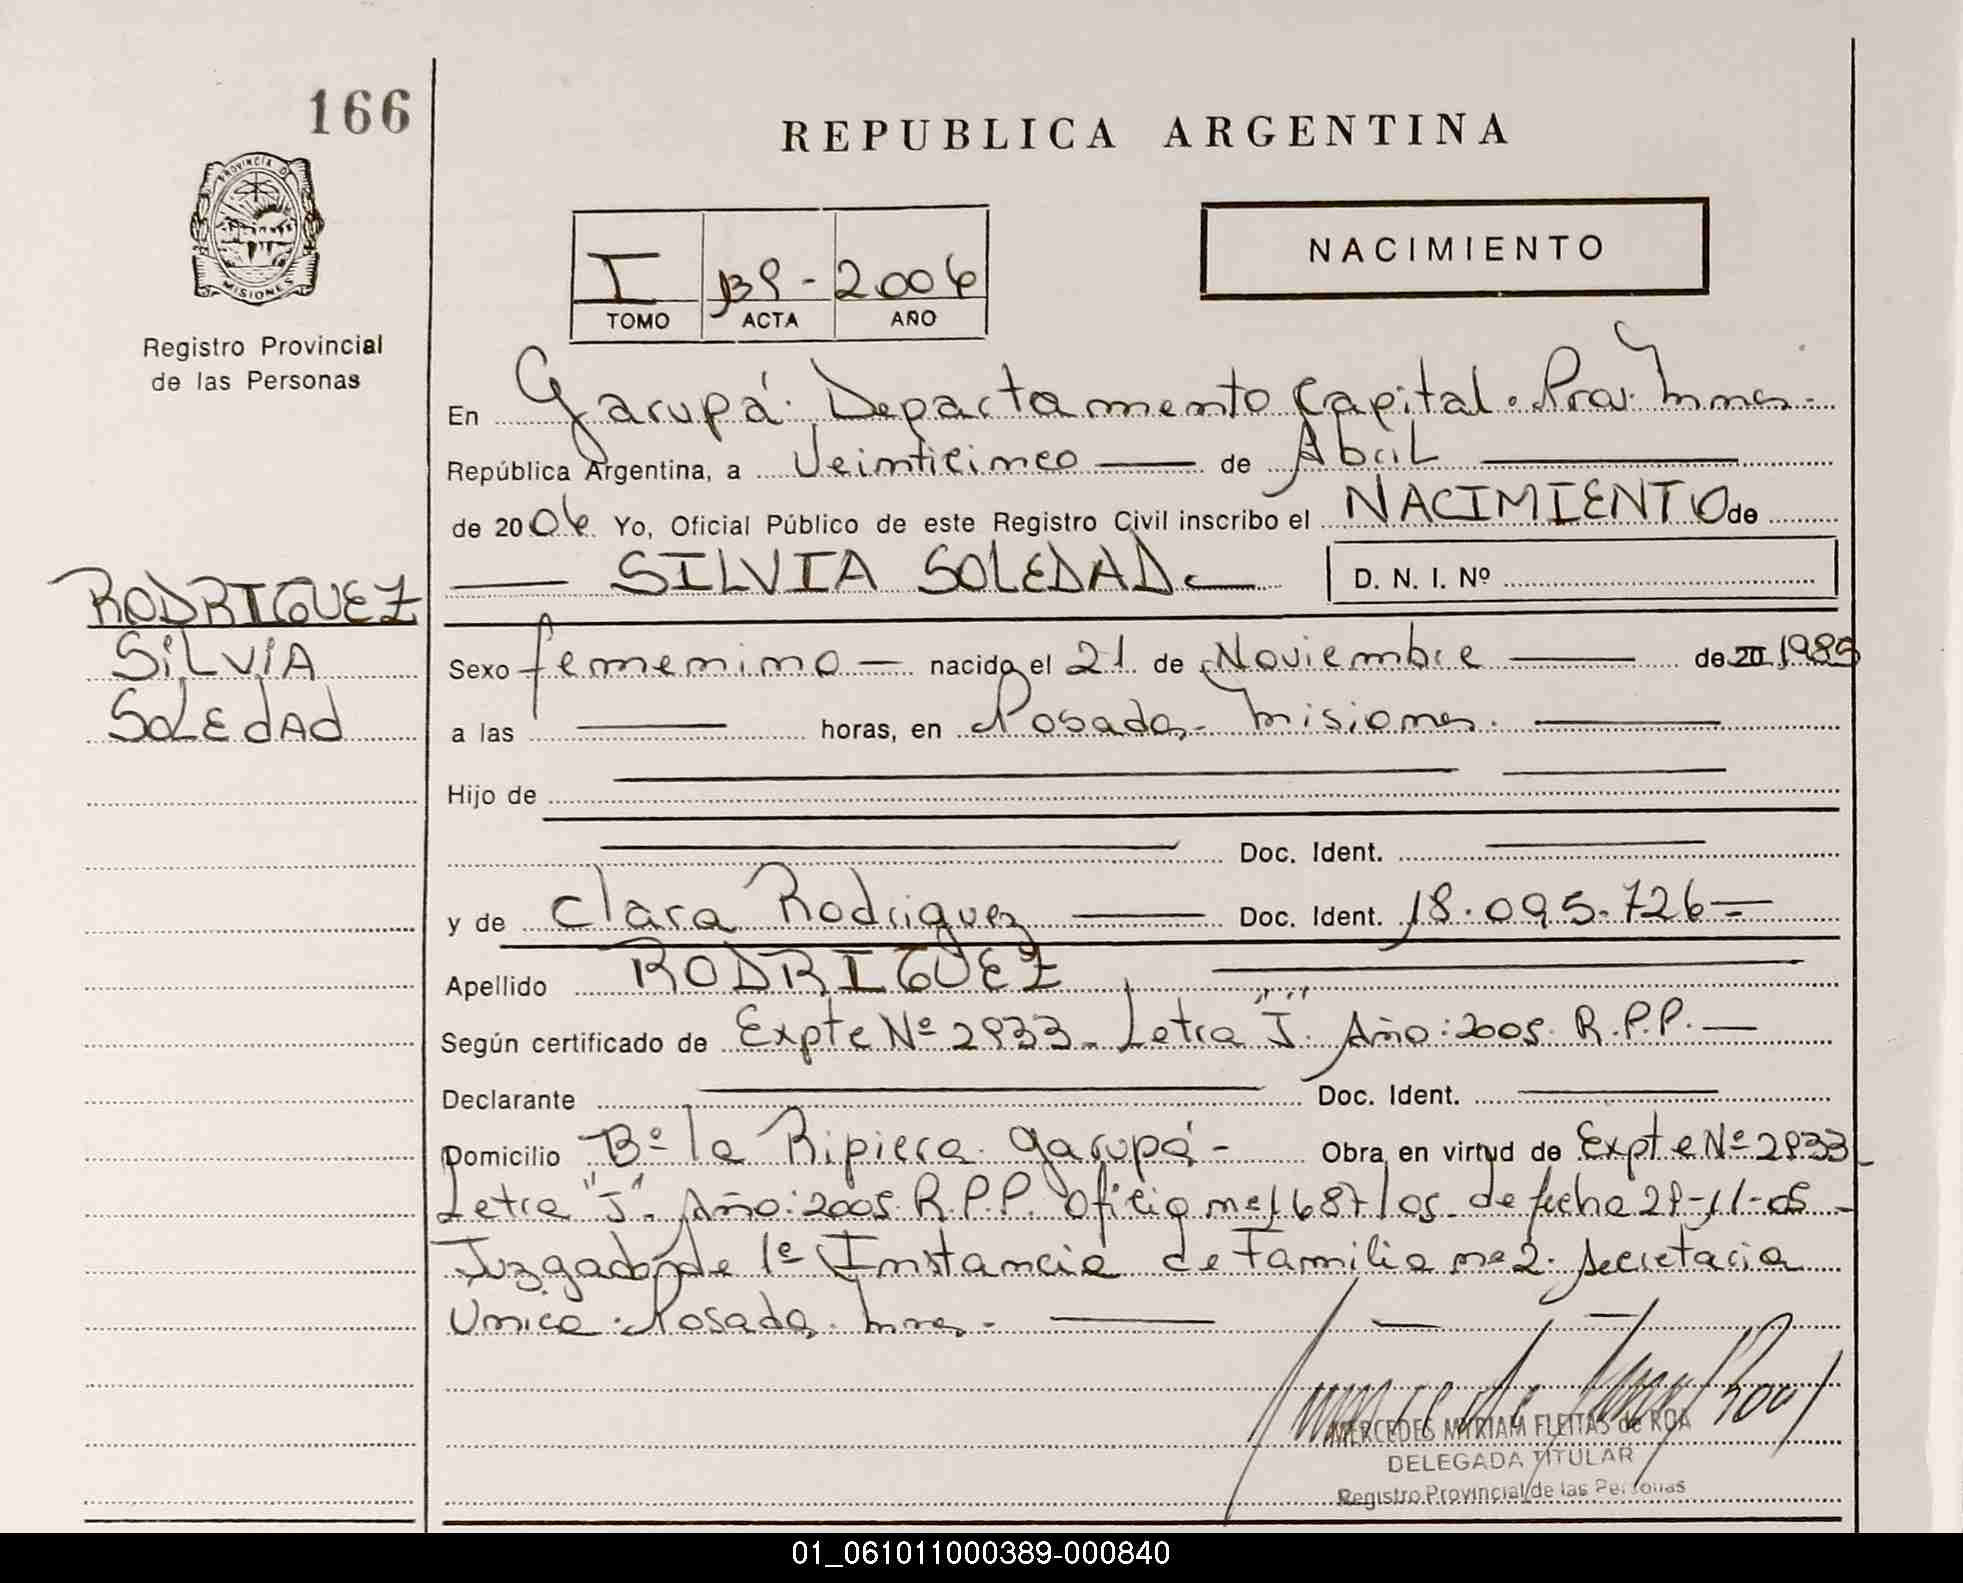 166
REPUBLICA ARGENTINA
PROVINCIA D
MISIONES
NACIMIENTO
I 2006
TOMO ACTA AÑO
Registro Provincial
de las Personas
En Garupá. Departamento Capital. Prov. Mnes.
República Argentina, a Veinticinco de Abril
de 2006 Yo, Oficial Público de este Registro Civil inscribo el NACIMIENTO de
SILVIA SOLEDAD
D. N. I. Nº
RODRIGUEZ
SILVIA
SOLEDAD
Sexo femenino nacida el 21 de Noviembre de 1989
a las horas, en Posadas - Misiones.
Hijo de
Doc. Ident.
y de Clara Rodriguez Doc. Ident. 18.095.726
Apellido RODRIGUEZ
Según certificado de Expte Nº 2933 - Letra "J". Año: 2005. R.P.P.
Declarante Doc. Ident.
Domicilio Bº la Ripiera. Garupá - Obra en virtud de Expte Nº 2933
Letra "J". Año: 2005. R.P.P. Oficio nº 1687/05. de fecha 29-11-05 -
Juzgado de 1º Instancia de Familia nº 2. Secretaria
Unica. Posadas. Mnes. -
MERCEDES MYRIAM FLEITAS de ROA
DELEGADA TITULAR
Registro Provincial de las Personas
01_061011000389-000840